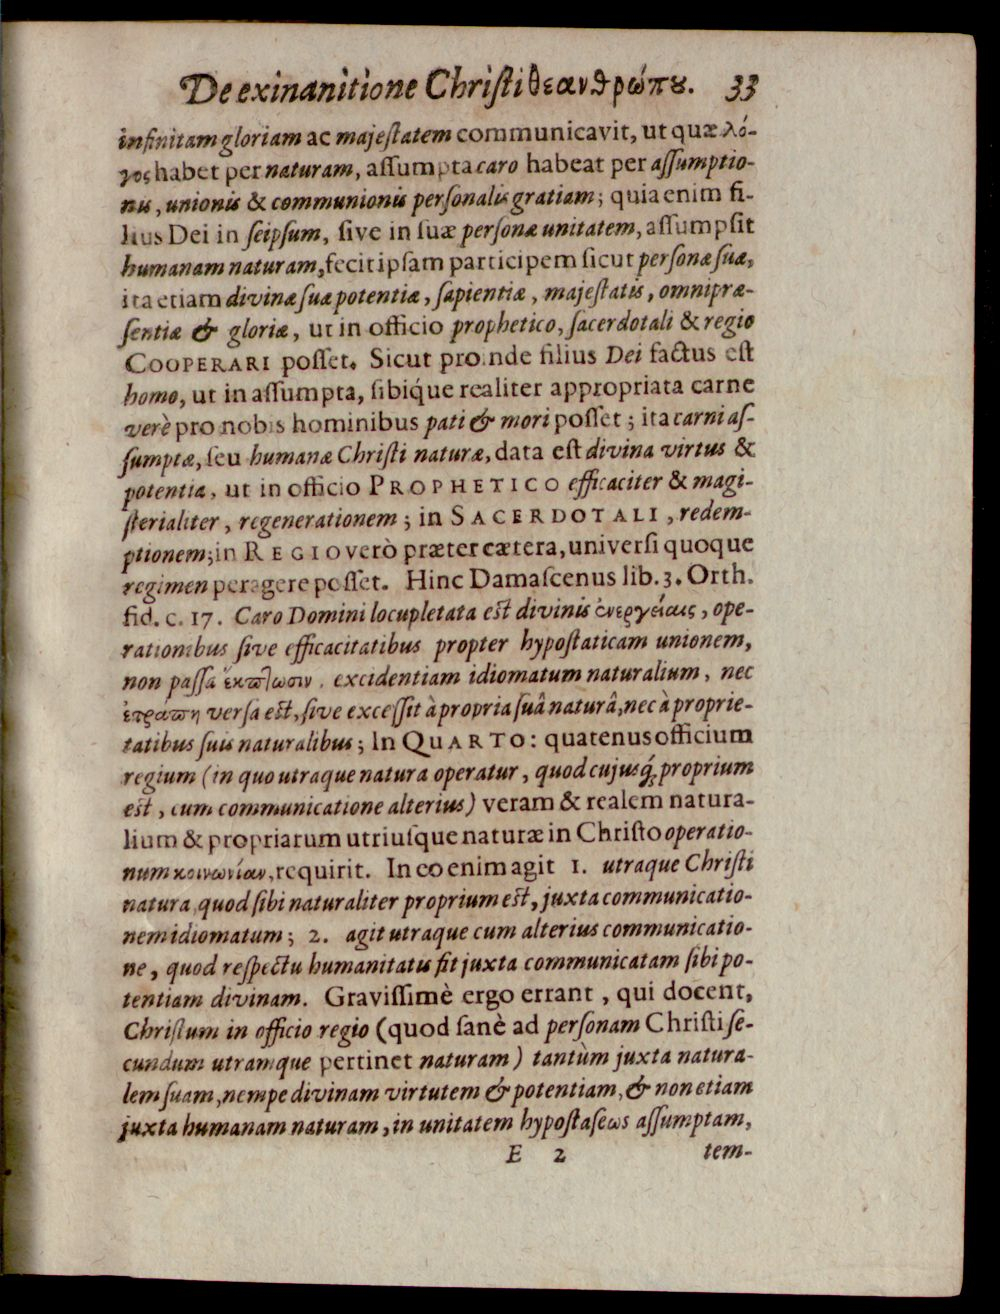 De exinanitione Chriſti θεανθρώπȣ. 33
infinitam gloriam ac majeſtatem communicavit, ut quæ λό-
γος habet per naturam, aſſumpta caro habeat per aſſumptio-
nis, unionis & communionis perſonalis gratiam; quia enim fi-
lius Dei in ſeipſum, ſive in ſuæ perſonæ unitatem, aſſumpſit
humanam naturam, fecit ipſam participem ſicut perſonæ ſuæ,
ita etiam divinæ ſuæ potentiæ, ſapientiæ, majeſtatis, omnipræ-
ſentiæ & gloriæ, ut in officio prophetico, ſacerdotali & regio
COOPERARI poſſet. Sicut proinde filius Dei factus eſt
homo, ut in aſſumpta, ſibiq́ue realiter appropriata carne
verè pro nobis hominibus pati & mori poſſet; ita carni aſ-
ſumptæ, ſeu humanæ Chriſti naturæ, data eſt divina virtus &
potentia, ut in officio PROPHETICO efficaciter & magi-
ſterialiter, regenerationem; in SACERDOTALI, redem-
ptionem; in REGIO verò præter cætera, univerſi quoque
regimen peragere poſſet. Hinc Damaſcenus lib. 3. Orth.
fid. c. 17. Caro Domini locupletata eſt divinis ἐνεργείαις, ope-
rationibus ſive efficacitatibus propter hypoſtaticam unionem,
non paſſa ἔκπτωσιν, excidentiam idiomatum naturalium, nec
ἐτράπη verſa eſt, ſive exceſſit à propria ſuâ naturâ, nec à proprie-
tatibus ſuis naturalibus; In QUARTO: quatenus officium
regium (in quo utraque natura operatur, quod cujusq́; proprium
eſt, cum communicatione alterius) veram & realem natura-
lium & propriarum utriuſque naturæ in Chriſto operatio-
num κοινωνίαν, requirit. In eo enim agit 1. utraque Chriſti
natura, quod ſibi naturaliter proprium eſt, juxta communicatio-
nem idiomatum; 2. agit utraque cum alterius communicatio-
ne, quod reſpectu humanitatis fit juxta communicatam ſibi po-
tentiam divinam. Graviſſimè ergo errant, qui docent,
Chriſtum in officio regio (quod ſanè ad perſonam Chriſti ſe-
cundum utramque pertinet naturam) tantùm juxta natura-
lem ſuam, nempe divinam virtutem & potentiam, & non etiam
juxta humanam naturam, in unitatem hypoſtaſεως aſſumptam,
E 2 tem-